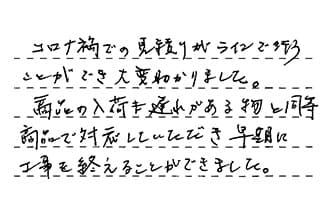 コロナ禍での見積りがラインで行う
ことができ大変助かりました。
商品の入荷も遅れがある物と同等
商品で対応していただき早期に
工事を終えることができました。